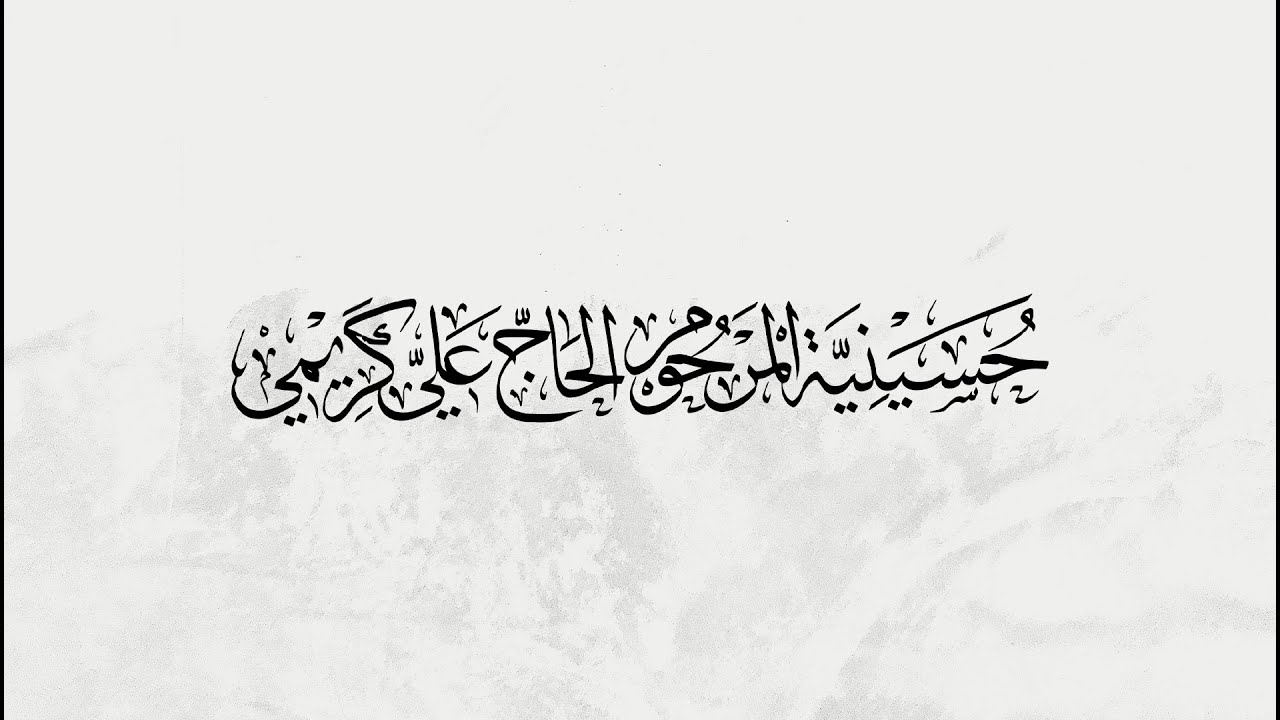 حُسَيْنِيَّة الْمَرْحُوم الحَاجّ عَلِيّ كَرِيْمِيْ